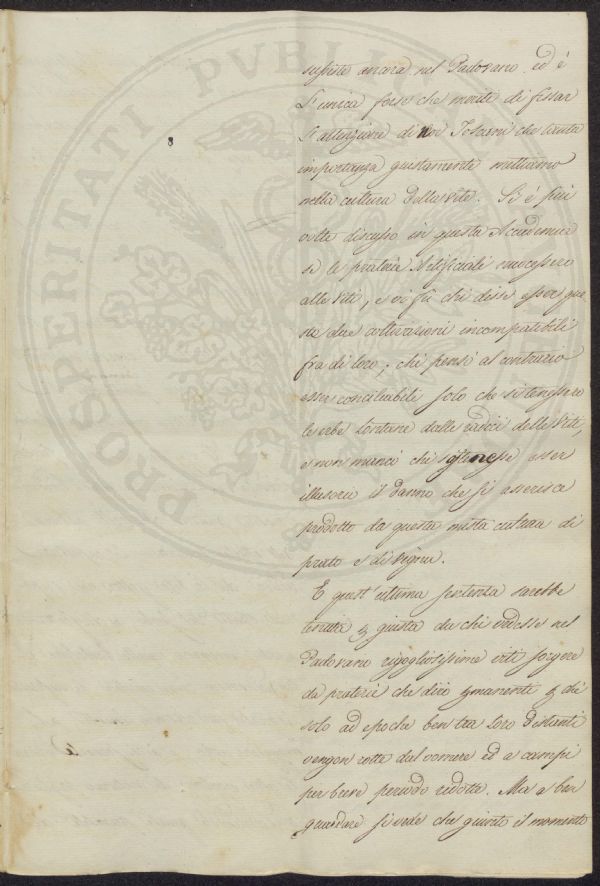 PROSPERITATI PUBLICAE
supiste ancora nel Padovano ed è
l'unica forse che merite di fissar
l'attenzione di Noi Toscani che tanta
importanza giustamente mettiamo
nella cultura della Vite. Si è più
volte discusso in questa Accademia
se le praterie Artificiali nuocessero
alle Viti, e vi fù chi disse esser que
ste due coltivazioni incompatibili
fra di loro; chi pensò al contrario
esser conciliabili solo che si tenessero
le erbe lontane dalle radici delle Viti,
e non mancò chi sostenesse esser
illusorio il danno che si asserisce
prodotto da questa mista cultura di
prato e di vigna.
E quest'ultima sentenza sarebbe
tenuta p giusta da chi vedesse nel
Padovano rigogliosissime viti sorgere
da praterie che dirò pmanenti p chè
solo ad epoche ben tra loro distanti
vengon rotte dal vomere ed a campi
per breve periodo ridotte. Ma a ben
guardare si vede che giunto il momento